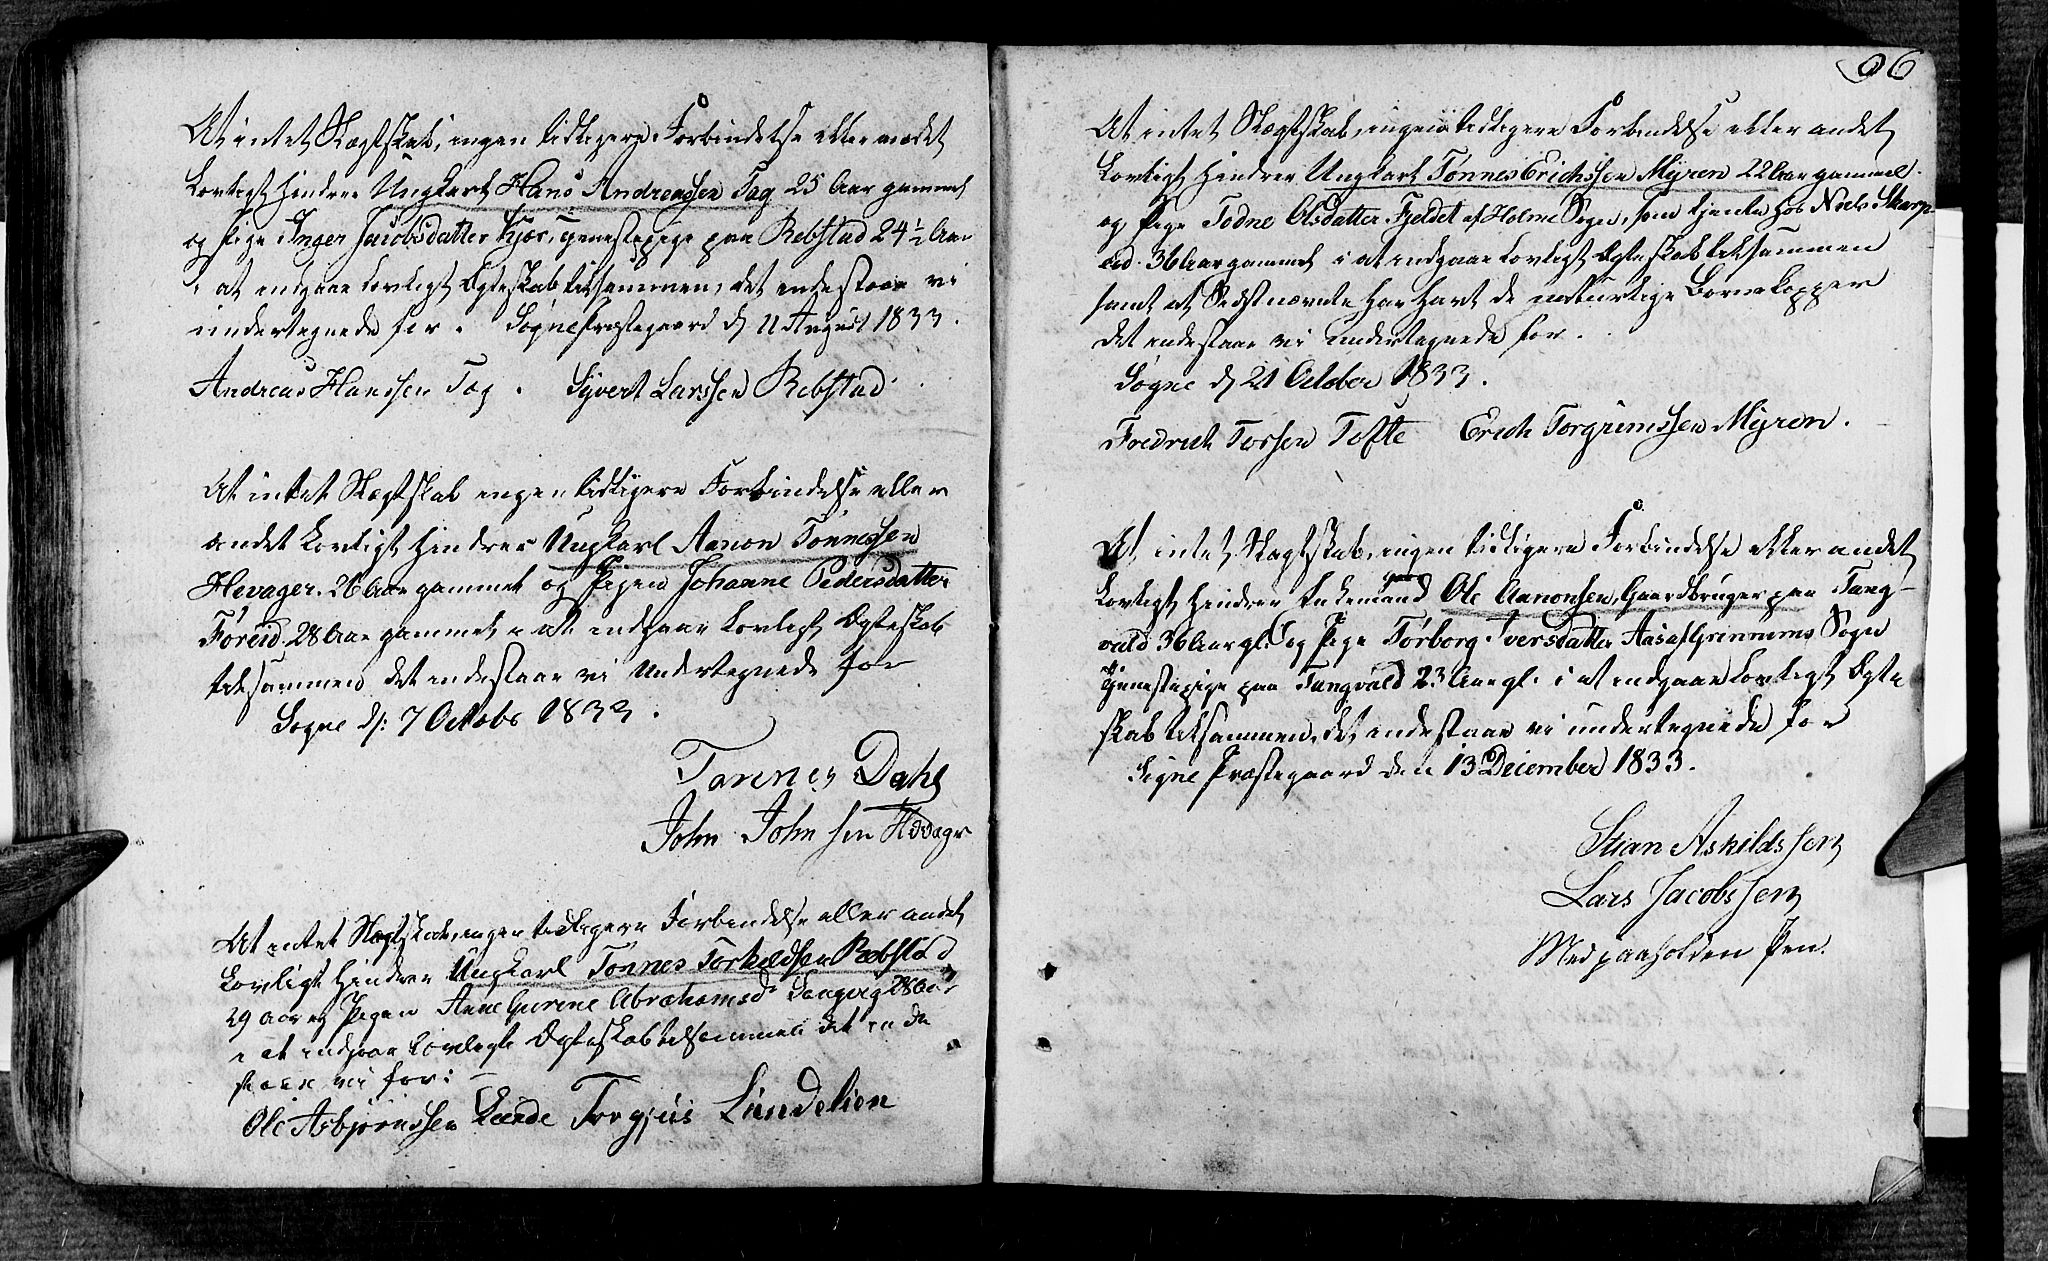 At intet Slægtskab, ingen tidligere Forbindelse eller andet
Lovligt hindrer Ungkarl Hans Andreassen Tag 25 Aar gammel
og Pige Inger Jacobsdatter Kjær, tjenestepige paa Rebstad 24½ Aar
i at indgaae Lovligt Egteskab tilsammen, det indestaae vi
undertegnede for. Søgne Præstegaard d 11 August 1833.
Andreas Hanssen Tag. Syvert Larssen Rebstad
At intet Slægtskab ingen tidligere Forbindelse eller
andet Lovligt hindrer Ungkarl Aanon Tønnessen
Hevager. 26 Aar gammel og Pigen Johanne Pedersdatter
Føreid 28 Aar gammel i at indgaae Lovligt Egteskab
tilsammen det indestaae vi Undertegnede for
Søgne d: 7 Octobr 1833.
Tønnes Dahl
John Johnsen
At intet Slægtskab, ingen tidligere Forbindelse eller andet
Lovligt hindrer Ungkarl Tønnes Torkeldsen Rebstad
29 Aar og Pigen Anne Gurine Abrahamsdr Langvig 28 Aar
i at indgaae Lovligt Egteskab tilsammen det inde
staae vi for:
Ole Asbjørnssen Torgjus Lundelien
96
At intet Slægtskab, ingen tidligere Forbindelse eller andet
Lovligt hindrer Ungkarl Tønnes Erichssen Myren 22 Aar gammel
og Pige Todne Olsdatter Fjeldet af Holme Sogn, som tjente hos Niels Skarp
eid 36 Aar gammel i at indgaae Lovligt Egteskab tilsammen
samt at Sidstnævnte har havt de naturlige Børnekopper
det indestaae vi undertegnede for.
Søgne d 21 October 1833.
Fredrich Torssen Tofte Erich Torgrimssen Myren.
At intet Slægtskab, ingen tidligere Forbindelse eller andet
Lovligt hindrer Enkemand Ole Aanonsen, Gaardbruger paa Tang-
vald 36 Aar gl. og Pige Torborg Iversdatter Aas af Grennums Sogn
Tjenestepige paa Tangvald 23 Aar gl. i at indgaae Lovligt Egte
skab tilsammen, det indestaae vi undertegnede for
Søgne Præstegaard den 13 December 1833.
Stian Askildssen
Lars Jacobssen
Med paaholden Pen.